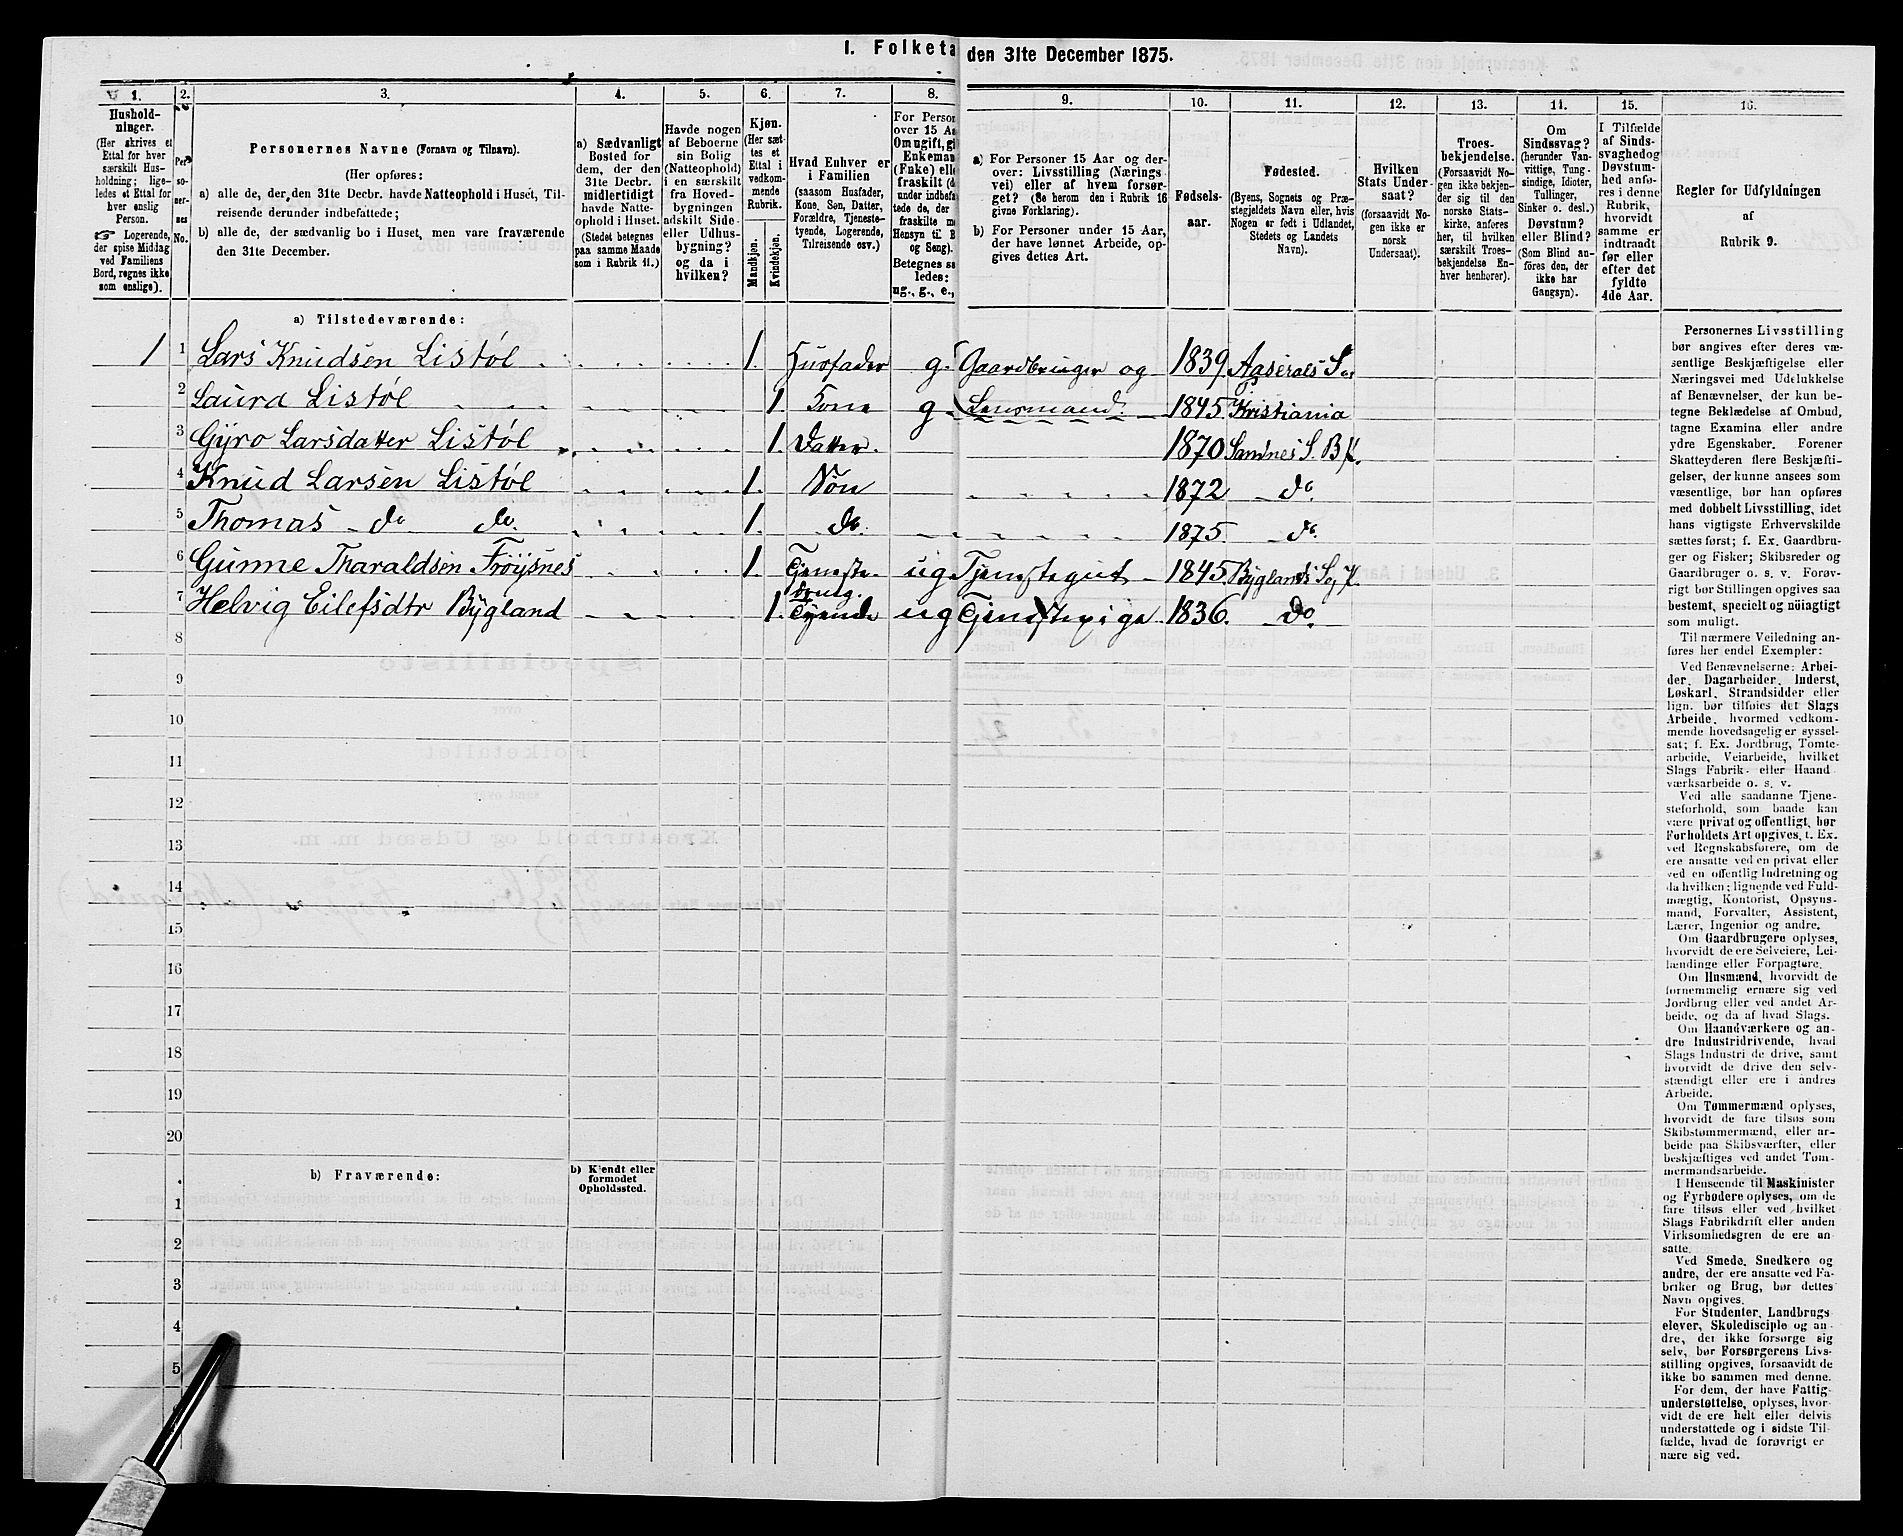 I. Folketa den 31te December 1875.
1. 2. 3. 4. 5. 6. 7. 8. 9. 10. 11. 12. 13. 14. 15. 16.
Hushold-
ninger.
(Her skrives et
Ettal for hver
særskilt Hus-
holdning; lige-
ledes et Ettal for
hver enslig
Person.
☞ Logerende,
der spise Middag
ved Familiens
Bord, regnes ikke
som enslige).
Per
so-
ner-
nes
No.
Personernes Navne (Fornavn og Tilnavn).
(Her opføres:
a) alle de, der den 31te Decbr. havde Natteophold i Huset, Til-
reisende derunder indbefattede;
b) alle de, der sædvanlig bo i Huset, men vare fraværende
den 31te December.
a) Sædvanligt
Bosted for
dem, der den
31te Decbr.
midlertidigt
havde Natte-
ophold i Huset.
(Stedet betegnes
paa samme Maade
som i Rubrik 11.)
Havde nogen
af Beboerne
sin Bolig
(Natteophold)
i en særskilt
fra Hoved-
bygningen
adskilt Side-
eller Udhus-
bygning?
og da i
hvilken?
Kjøn.
(Her sæt-
tes et
Ettal i
vedkom-
mende
Rubrik.
Mandkjøn.
Kvindekjøn.
Hvad Enhver er
i Familien
(saasom Husfader,
Kone, Søn, Datter,
Forældre, Tjeneste-
tyende, Logerende,
Tilreisende osv.)
For Person
over 15 Aa
Om ugift, gi
Enkeman
(Enke) elle
fraskilt (d
under indbefa
tede de, der
fraskilte m
Hensyn til B
og Seng).
Betegnes sa
ledes:
ug., g., e.,
a) For Personer 15 Aar og der-
over: Livsstilling (Nærings
vei) eller af hvem forsør-
get? (Se herom den i Rubrik 16
givne Forklaring).
b) For Personer under 15 Aar,
der have lønnet Arbeide, op-
gives dettes Art.
Fødsels-
aar.
Fødested.
(Byens, Sognets og Præ-
stegjeldets Navn eller, hvis
Nogen er født i Udlandet,
Stedets og Landets
Navn).
Hvilken
Stats Under-
saat?
(forsaavidt No-
gen ikke er
norsk
Undersaat).
Troes-
bekjendelse.
(Forsaavidt No-
gen ikke bekjen-
der sig til den
norske Stats-
kirke, anføres
her, til hvilken
særskilt Troes-
bekjendelse En-
hver henhører).
Om
Sindssvag?
(herunder Van-
vittige, Tung-
sindige, Idioter,
Tullinger,
Sinker o. desl.)
Døvstum?
eller Blind?
(Som Blind an-
føres den, der
ikke har
Gangsyn).
I Tilfælde
af Sinds-
svaghed og
Døvstum-
hed anfø-
res i denne
Rubrik,
hvorvidt
samme er
indtraadt
før eller
efter det
fyldte
4de Aar.
Regler for Udfyldningen
af
Rubrik 9.
a) Tilstedeværende:
1 1 Lars Knudsen Listøl 1. Husfader g. Gaardbruger og 1839 Aaserals S.
2 Laura Listøl 1. Kone g. Lensmand. 1845 Kristiania
3 Gyro Larsdatter Listøl 1. Datter. 1870 Sandnes S. B P.
4 Knud Larsen Listøl 1. Søn 1872 do
5 Thomas do do. 1. do. 1875. do.
6 Gunne Tharaldsen Frøysnes 1. Tjeneste- ug. Tjenestegut 1845 Byglands S. P.
7 Helvig Eilefsdtr Bygland 1. Tyende ug Tjenestepige. 1836. do.
8
9
10
11
12
13
14
15
16
17
18
19
20
b) Fraværende:
b) Kjendt eller
formodet
Opholdssted.
1
2
3
4
5
Personernes Livsstilling
bør angives efter deres væ-
sentlige Beskjæftigelse eller
Næringsvei med Udelukkelse
af Benævnelser, der kun be-
tegne Beklædelse af Ombud,
tagne Examina eller andre
ydre Egenskaber. Forener
Skatteyderen flere Beskjæfti-
gelser, der kunne ansees som
væsentlige, bør han opføres
med dobbelt Livsstilling, idet
hans vigtigste Erhvervskilde
sættes først; f. Ex. Gaardbru-
ger og Fisker; Skibsreder og
Gaardbruger o. s. v. Forøv-
rigt bør Stillingen opgives saa
bestemt, specielt og nöiagtig
som muligt.
Til nærmere Veiledning an-
føres her endel Exempler:
Ved Benævnelserne: Arbei-
der, Dagarbeider, Inderst,
Løskarl, Strandsidder eller
lign. bør tilføies det Slags
Arbeide, hvormed vedkom-
mende hovedsagelig er syssel-
sat; f. Ex. Jordbrug, Tomte-
arbeide, Veiarbeide, hvilket
Slags Fabrik- eller Haand
værksarbeide o. s. v.
Ved alle saadanne Tjene-
steforhold, som baade kan
være privat og offentligt, bør
Forholdets Art opgives, t. Ex.
ved Regnskabsførere, om de
ere ansatte ved en privat eller
ved en offentlig Indretning og
da hvilken; lignende ved Fuld-
mægtig, Kontorist, Opsyns-
mand, Forvalter, Assistent,
Lærer, Ingeniør og andre.
Om Gaardbrugere oplyses,
hvorvidt de ere Selveiere, Lei-
lændinge eller Forpagtere.
Om Husmænd, hvorvidt de
fornemmelig ernære sig ved
Jordbrug eller ved andet Ar-
beide, og da af hvad Slags.
Om Haandværkere og an-
dre Industridrivende, hvad
Slags Industri de drive, samt
hvorvidt de drive den selv-
stændigt eller ere i andres
Arbeide.
Om Tømmermænd oplyses,
hvorvidt de fare tilsøs som
Skibstømmermænd, eller ar-
beide paa Skibsværfter, eller
beskjæftiges ved andet Tøm-
mermandsarbeide.
I Henseende til Maskinister
og Fyrbødere oplyses, om de
fare tilsøs eller ved hvilket
Slags Fabrikdrift eller anden
Virksomhedsgren de ere an-
satte.
Ved Smede, Snedkere og
andre, der ere ansatte ved Fa-
briker og Brug, bør dettes
Navn opgives.
For Studenter, Landbrugs
elever, Skoledisciple og an-
dre, der ikke forsørge sig
selv, bør Forsørgerens Livs-
stilling opgives, forsaavidt de
ikke bo sammen med denne.
For dem, der have Fattig-
understøttelse, oplyses, hvor-
vidt de ere helt eller delvis
understøttede og i sidste Til-
fælde, hvad de forøvrigt er
nære sig ved.